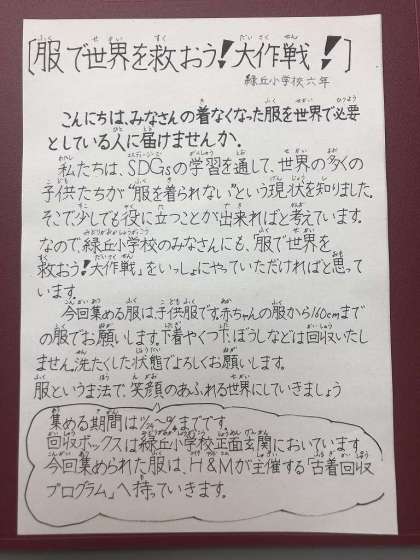 [服で世界を救おう!大作戦!]
緑丘小学校六年
こんにちは、みなさんの着なくなった服を世界で必要
としている人に届けませんか。
私たちは、SDGsの学習を通して、世界の多くの
子供たちが"服を着られない"という現状を知りました。
そこで少しでも役に立つことが出来ればと考えています。
なので、緑丘小学校のみなさんにも、「服で世界を
救おう!大作戦」をいっしょにやっていただければと思って
います。
今回集める服は、子供服です。赤ちゃんの服から160cmまで
の服でお願いします。下着やくつ下、ぼうしなどは回収いたし
ません。洗たくした状態でよろしくお願いします。
服というま法で、笑顔のあふれる世界にしていきましょう
集める期間は までです。
回収ボックスは緑丘小学校正面玄関においています。
今回集められた服は、H&Mが主催する「古着回収
プログラム」へ持っていきます。